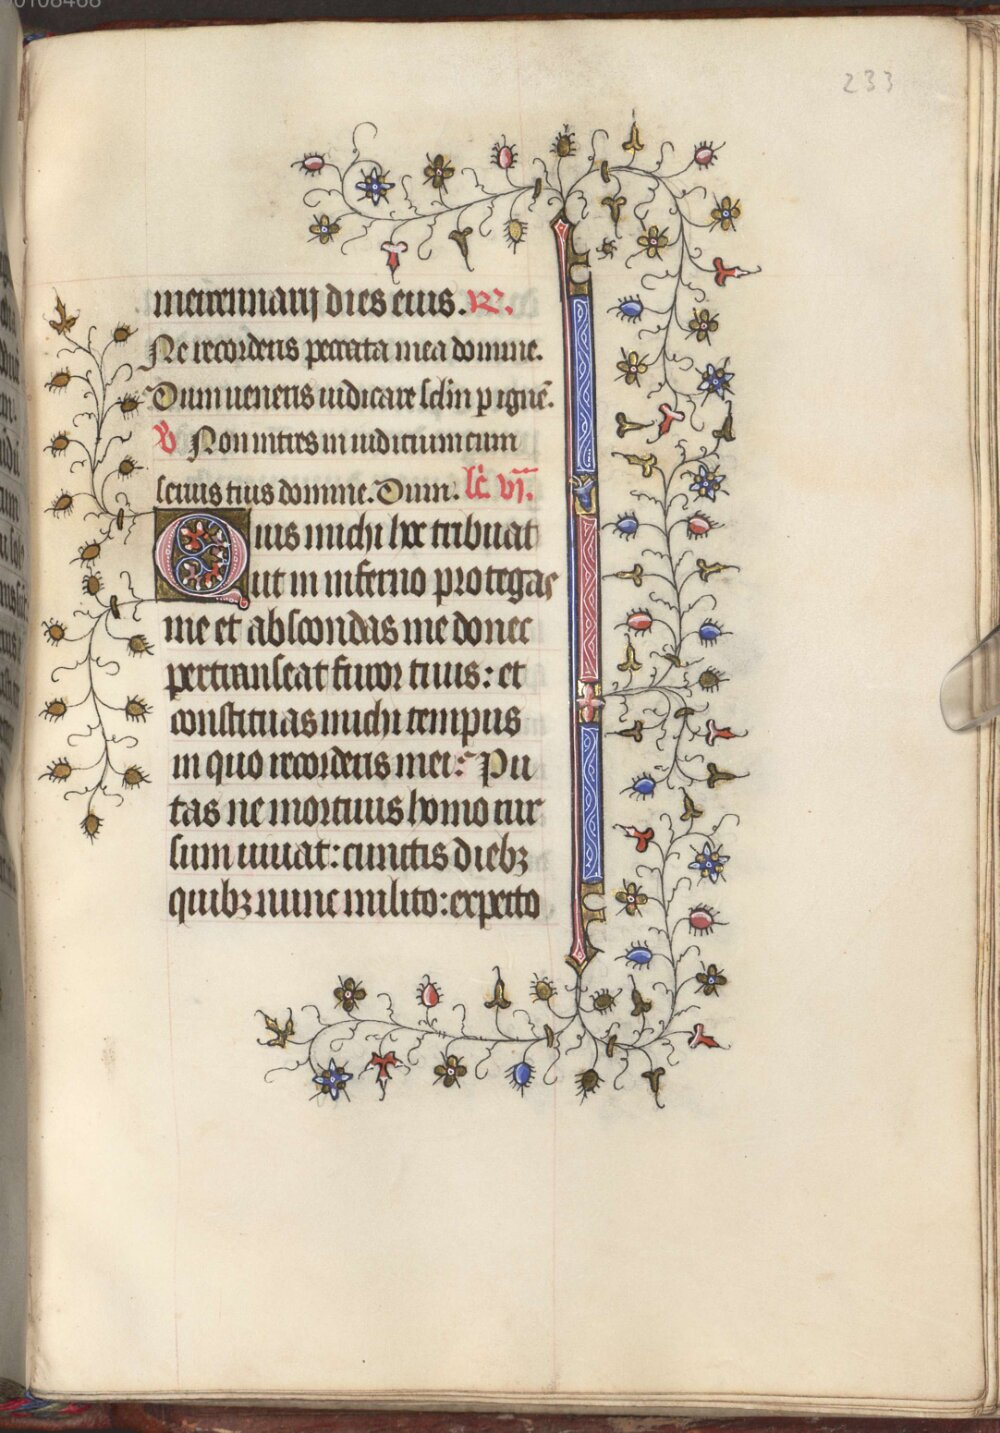 00108468
233
mercennarij dies eius. R̃.
Ne recorderis peccata mea domine.
Dum ueneris iudicare sclm̃ p ignẽ.
V Non intres in iudicium cum
seruo tuo domine. Dum. lc̃. vi.
Quis michi hoc tribuat
ut in inferno protegas
me et abscondas me donec
pertranseat furor tuus: et
constituas michi tempus
in quo recorderis mei: Pu
tas ne mortuus homo rur
sum uiuat: cunctis diebꝫ
quibꝫ nunc milito: expecto